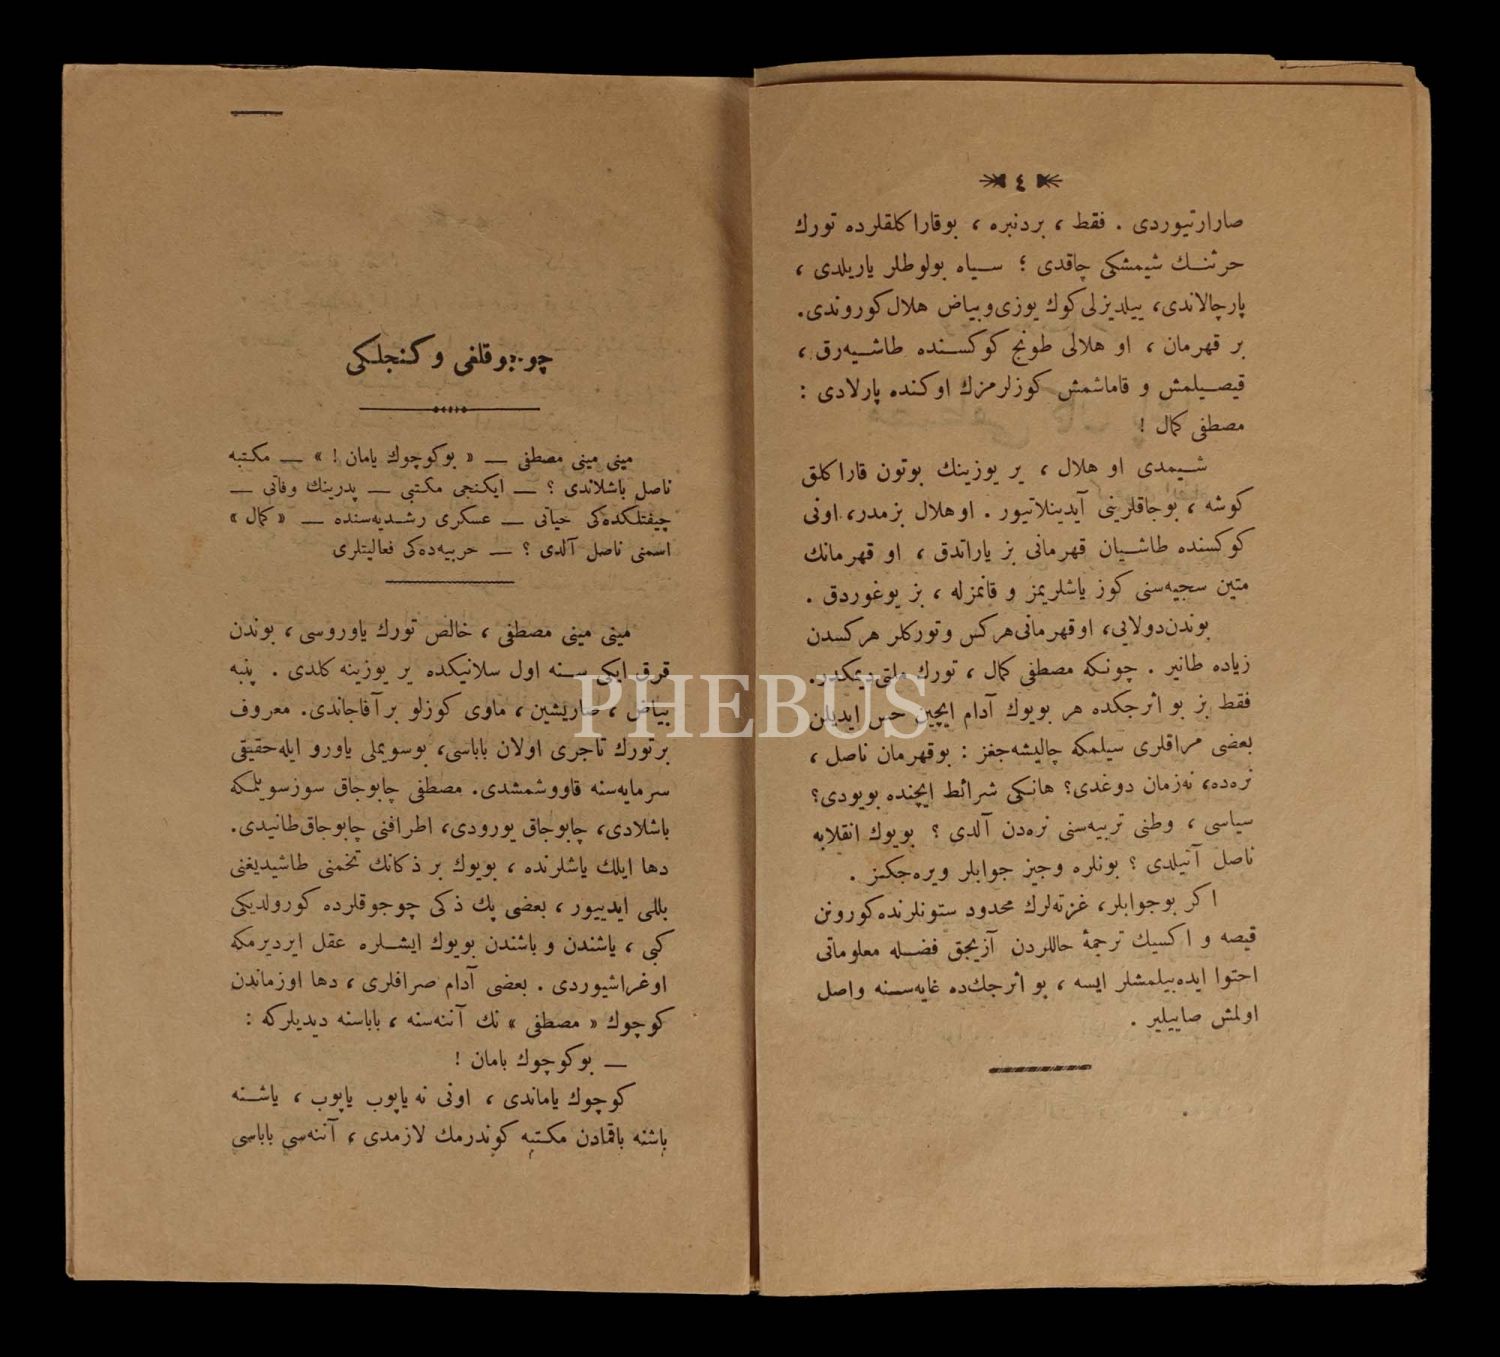 ٤
صارارتیوردی . فقط ، بردنبره ، بوقاراكلقلرده تورك
حرثنـك شیمشكی چاقدی ؛ سـیاه بولوطلر یاریلدی ،
پارچالاندی، ییلدیزلی كوك یوزی و بیاض هلال كوروندی.
بر قهرمان ، او هلالی طونج كوكسـنده طاشـیه‌رق ،
قیصـیلمش و قاماشمش كوزلرمزك اوكنده پارلادی :
مصطفی كمال !
شـیمدی او هلال ، یر یوزینك بوتون قاراكلق
كوشه ، بوجاقلرینی آیدینلاتیور . اوهلال بزمدر، اونی
كوكسنده طاشـیان قهرمانی بز یاراتدق ، او قهرمانك
متین سجیه‌سنی كوز یاشلریمز و قانمزله ، بز یوغوردق .
بوندن دولایی، اوقهرمانی هركس و توركلر هركسدن
زیاده طانیر . چونكه مصطفی كمال ، تورك ملتی دیمكدر.
فقط بز بو اثرجكده هر بویوك آدام ایچین حس ایدیلن
بعضی مراقلری سیلمكه چالیشه‌جغز : بوقهرمان ناصل ،
نره‌ده، نه‌زمان دوغدی؟ هانكی شرائط ایچنده بویودی؟
سیاسی ، وطنی تربیه‌سنی نره‌دن آلدی ؟ بویوك انقلابه
ناصل آتیلدی ؟ بونلره وجیز جوابلر ویره‌جكز .
اكر بوجوابلر، غزته‌لرك محدود ستونلرنده كورونن
قیصه و اكسیك ترجمۀ حاللردن آزیجق فضـله معلوماتی
احتوا ایده‌بیلمشلر ایسه ، بو اثرجك‌ده غایه‌سـنه واصل
اولمش صاییلیر .
چوجوقلغی و كنجلـكی
مینی مینی مصطفی — « بوكوچوك یامان ! » — مكتبه
ناصل باشلاندی ؟ — ایكنجی مكتبی — پدرینك وفاتی —
چیفتلكده‌كی حیاتی — عسكری رشـدیه‌سنده — « كمال »
اسمنی ناصل آلدی ؟ — حربیه‌ده‌كی فعالیتلری
مینی مینی مصطفی ، خالص تورك یاوروسی ، بوندن
قرق ایكی سـنه اول سلانیكده یر یوزینه كلدی . پنبه
بیاض ، صاریشین ، ماوی كوزلو بر آفاجاندی. معروف
بر تورك تاجری اولان باباسی، بوسویملی یاورو ایله حقیقی
سرمایه‌سنه قاووشمشدی. مصطفی چابوجاق سوزسویلمكه
باشلادی، چابوجاق یورودی، اطرافنی چابوجاق طانیدی.
دها ایلك یاشلرنده ، بویوك بر ذكانك تخمنی طاشیدیغنی
بللی ایدییور ، بعضی پك ذكی چوجوقلرده كورولدیكی
كبی ، یاشندن و باشندن بویوك ایشـلره عقل ایردیرمكه
اوغراشیوردی . بعضی آدام صرافلری ، دها اوزماندن
كوچوك « مصطفی » نك آننه‌سنه ، باباسنه دیدیلركه :
— بوكوچوك یامان !
كوچوك یاماندی ، اونی نه یاپوب یاپوب ، یاشـنه
باشنه باقمادن مكتبه كوندرمك لازمدی ، آننه‌سی باباسی
PHEBUS